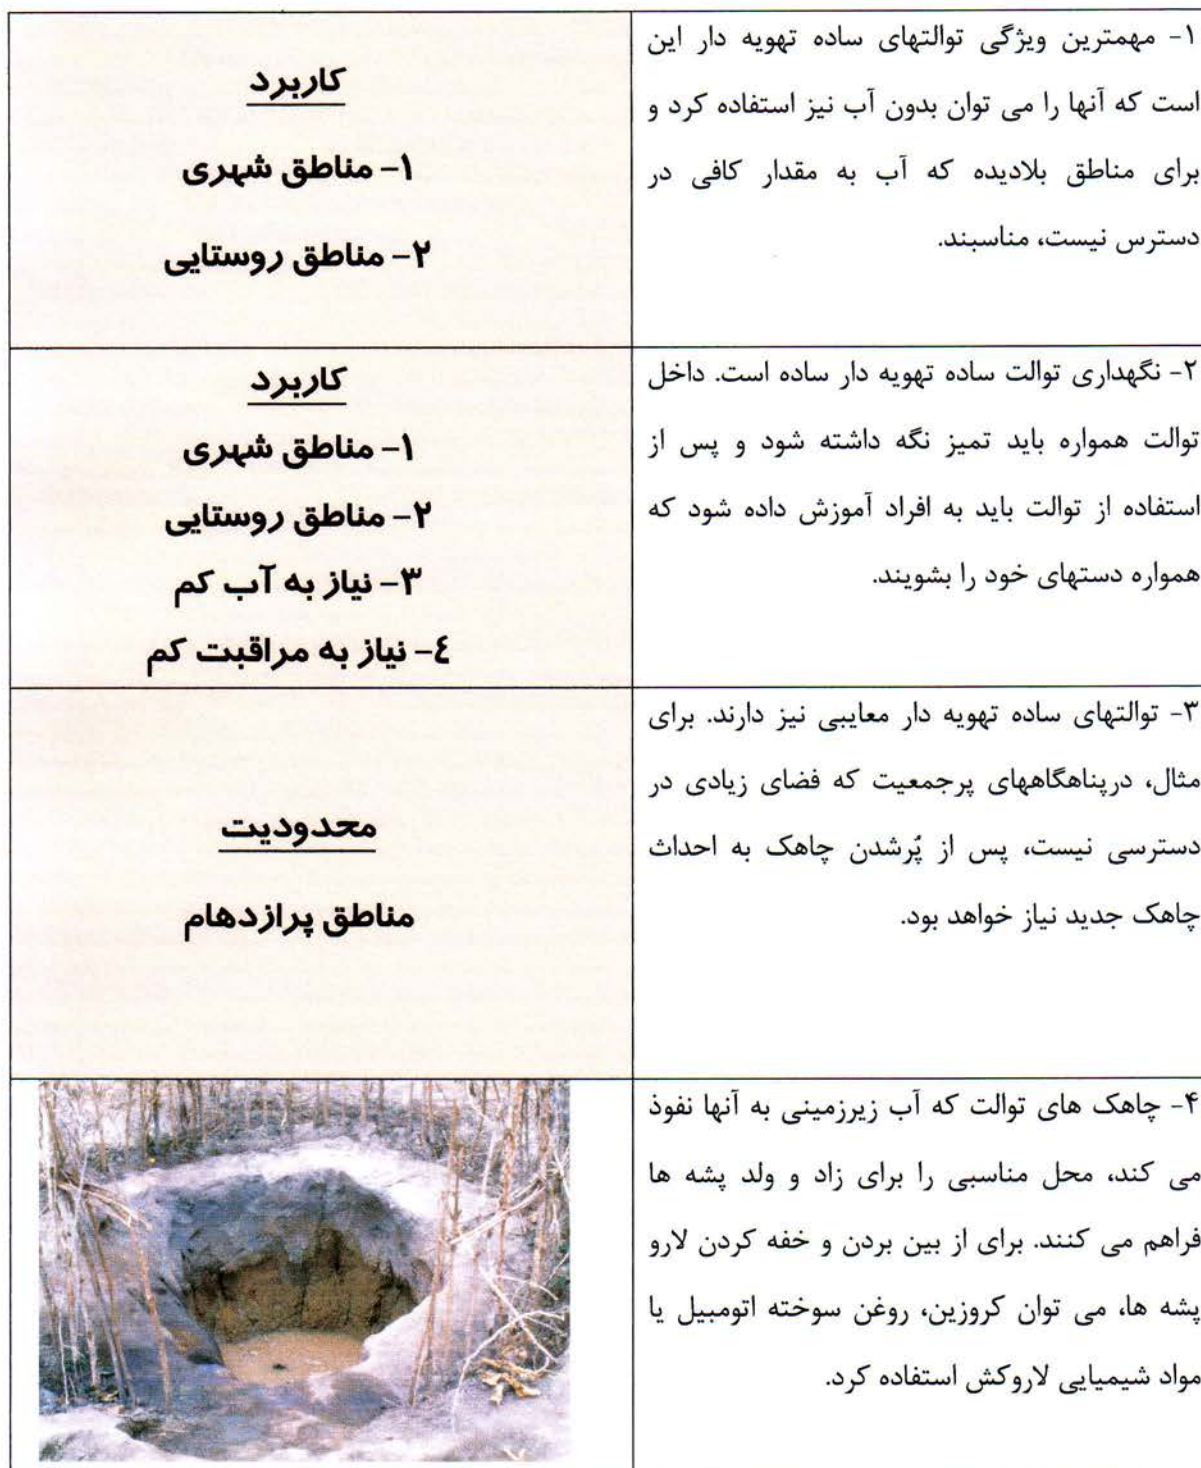 ۱- مهمترین ویژگی توالتهای ساده تهویه دار این
است که آنها را می توان بدون آب نیز استفاده کرد و
برای مناطق بلادیده که آب به مقدار کافی در
دسترس نیست، مناسبند.
کاربرد
۱- مناطق شهری
۲- مناطق روستایی
۲- نگهداری توالت ساده تهویه دار ساده است. داخل
توالت همواره باید تمیز نگه داشته شود و پس از
استفاده از توالت باید به افراد آموزش داده شود که
همواره دستهای خود را بشویند.
کاربرد
۱- مناطق شهری
۲- مناطق روستایی
۳- نیاز به آب کم
٤- نیاز به مراقبت کم
۳- توالتهای ساده تهویه دار معایبی نیز دارند. برای
مثال، درپناهگاههای پرجمعیت که فضای زیادی در
دسترسی نیست، پس از پُرشدن چاهک به احداث
چاهک جدید نیاز خواهد بود.
محدودیت
مناطق پرازدهام
۴- چاهک های توالت که آب زیرزمینی به آنها نفوذ
می کند، محل مناسبی را برای زاد و ولد پشه ها
فراهم می کنند. برای از بین بردن و خفه کردن لارو
پشه ها، می توان کروزین، روغن سوخته اتومبیل یا
مواد شیمیایی لاروکش استفاده کرد.